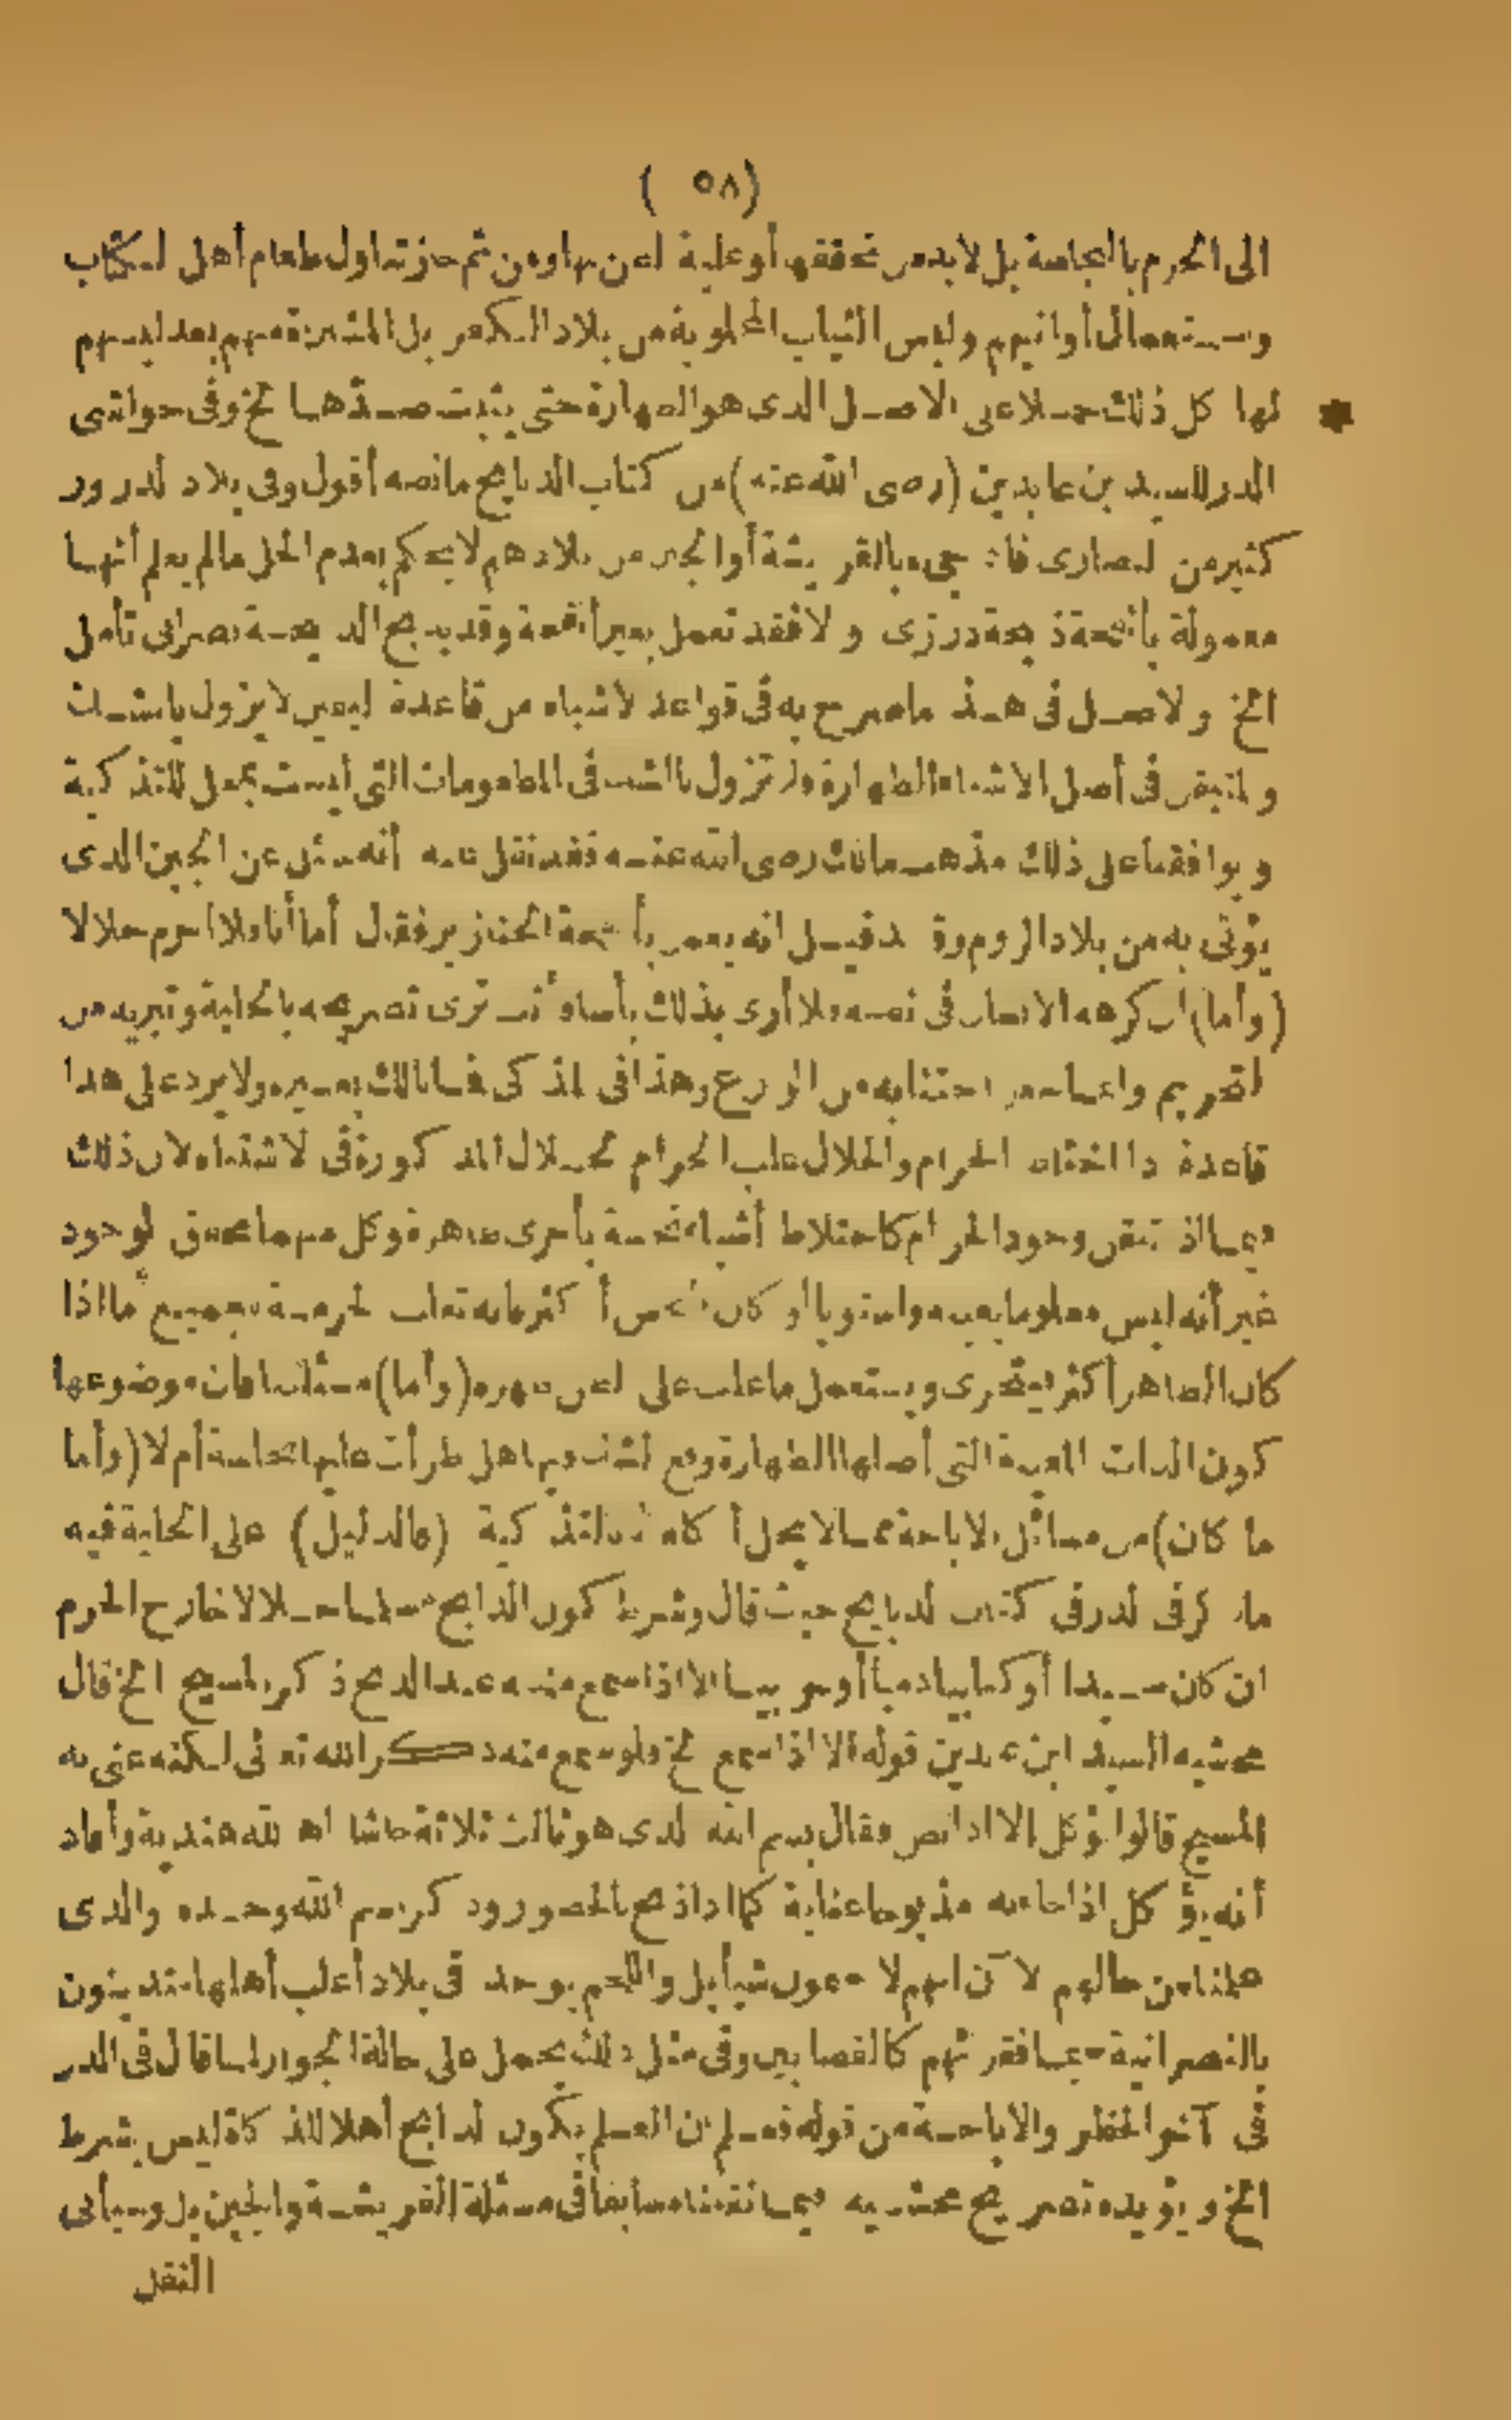 (٥٨)
الى الحرم بالنجاسة بل لابد من تحققها أو غلبة الظن بها ومن ثم جاز تناول طعام أهل الكتاب
واستعمال أوانيهم ولبس الثياب المجلوبة من بلاد الكفر بل المشتراة منهم بعد لبسهم
لها كل ذلك حملا على الاصل الذى هو الطهارة حتى يثبت ضدها الخ وفى حواشى
الدر للسيد بن عابدين (رضى الله عنه) من كتاب الذبائح ما نصه أقول وفى بلاد الدروز
كثير من النصارى فاذا جىء بالقريشة أو الجبن من بلادهم لا يحكم بعدم الحل مالم يعلم أنها
معمولة بأنفحة ذبيحة درزى والا فقد تعمل بغير أنفحة وقد يذبح الذبيحة نصرانى تأمل
الخ والاصل فى هذا ما صرح به فى قواعد الاشباه من قاعدة اليقين لا يزول بالشك
والمتيقن فى أصل الاشياء الطهارة ولا تزول بالشك فى المطعومات التى ليست بمحل للتذكية
ويوافقنا على ذلك مذهب مالك رضى الله عنه فقد نقل عنه أنه سئل عن الجبن الذى
يؤتى به من بلاد الروم وقد قيل انه يعمل بأنفحة الخنازير فقال أما أنا فلا أحرم حلالا
(وأما) ان كرهه الانسان فى نفسه فلا أرى بذلك بأسا وأنت ترى تصريحه بالحلية وتبريه من
التحريم وانما جعل اجتنابه من الورع وهذا فى المذكى فما بالك بغيره ولا يرد على هذا
قاعدة اذا اختلط الحرام والحلال غلب الحرام الحلال المذكورة فى الاشباه لان ذلك
فيما اذا تيقن وجود الحرام كاختلاط أشياء نجسة بأخرى طاهرة وكل منهما محقق الوجود
غير أنه ليس معلوما بعينه واستويا أو كان النجس أكثر فانه تغلب الحرمة بجميع أما اذا
كان الطاهر أكثر فيتحرى ويستعمل ما غلب على الظن طهره (وأما) مسئلتنا فان موضوعها
كون الذات المعينة التى أصلها الطهارة وقع الشك فيها هل طرأت عليها نجاسة أم لا (وأما
ما كان) من مسائل الاباحة مما لا يحل أكله الا بالتذكية (فالدليل) على الحلية فيه
ما ذكر فى الدر فى كتاب الذبائح حيث قال وشرط كون الذابح مسلما حلالا خارج الحرم
ان كان صيدا أو كتابيا ذميا أو حربيا الا اذا سمع منه عند الذبح ذكر المسيح الخ قال
محشيه السيد ابن عابدين قوله الا اذا سمع الخ فلو سمع منه ذكر الله تعالى لكنه عنى به
المسيح قالوا يؤكل الا اذا نص فقال بسم الله الذى هو ثالث ثلاثة حاشا الله هندية وأفاد
أنه يؤكل اذا جاء به مذبوحا عناية كما اذا ذبح بالحضور وذكر اسم الله وحده والذى
علمنا من حالهم الآن انهم لا يسمون شيأ بل واللحم يوجد فى بلاد أغلب أهلها متدينون
بالنصرانية سيما فقراؤهم كالقصابين وفى مثل ذلك يحمل على حالة الجواز لما قال فى الدر
فى آخر الحظر والاباحة من قوله فعلم ان العلم بكون الذابح أهلا للذكاة ليس بشرط
الخ ويؤيده تصريح محشيه فيما نقلناه سابقا فى مسئلة القريشة والجبن بل وسيأتى
النقل